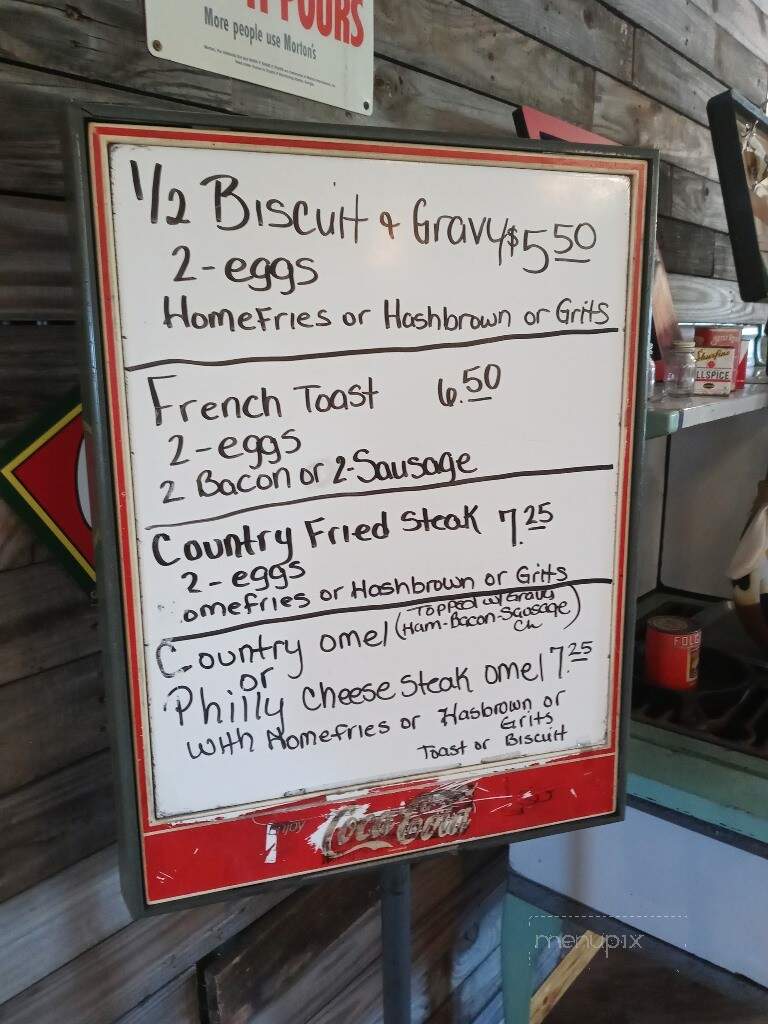 POURS
More people use Morton's
1/2 Biscuit & Gravy $5.50
2-eggs
Homefries or Hashbrown or Grits
French Toast 6.50
2-eggs
2 Bacon or 2-Sausage
Country Fried Steak 7.25
2-eggs
omefries or Hashbrown or Grits
Topped w/Gravy
Country omel (Ham-Bacon-Sausage
Ch)
or
Philly Cheese Steak omel 7.25
with Homefries or Hasbrown or
Grits
Toast or Biscuit
Enjoy
Coca-Cola
Shurfine
LLSPICE
FOLG
menupix